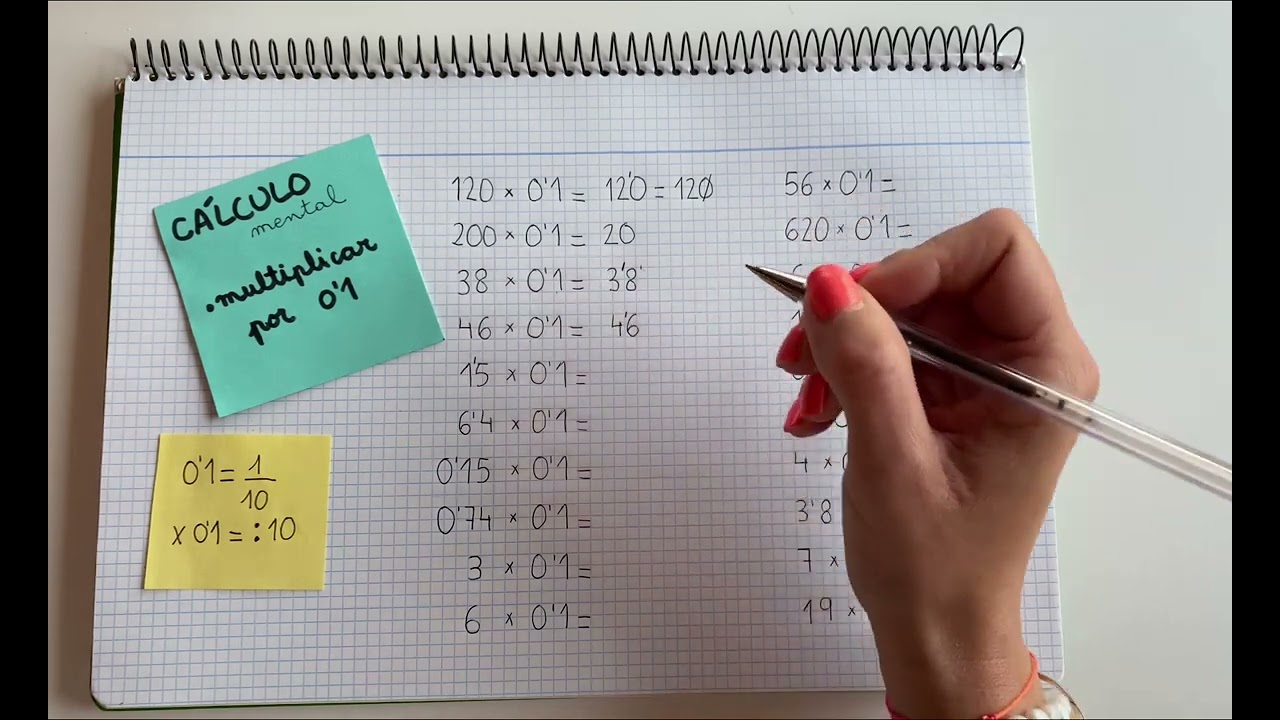 CÁLCULO
mental
.multiplicar
por 0'1
0'1 = 1/10
x 0'1 = :10
120 x 0'1 = 12'0 = 120
200 x 0'1 = 20
38 x 0'1 = 3'8
46 x 0'1 = 4'6
1'5 x 0'1 =
6'4 x 0'1 =
0'15 x 0'1 =
0'74 x 0'1 =
3 x 0'1 =
6 x 0'1 =
56 x 0'1 =
620 x 0'1 =
4 x
3'8
7 x
19 x